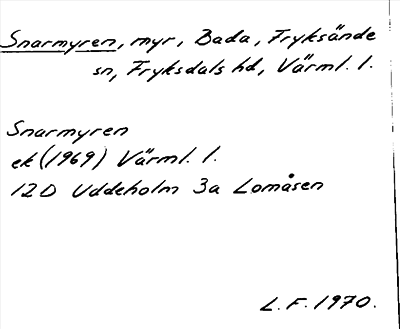 Snarmyren, myr, Bada, Fryksände
sn, Fryksdals hd, Värml. l.
Snarmyren
ek (1969) Värml. l.
12D Uddeholm 3a Lomåsen
L.F. 1970.